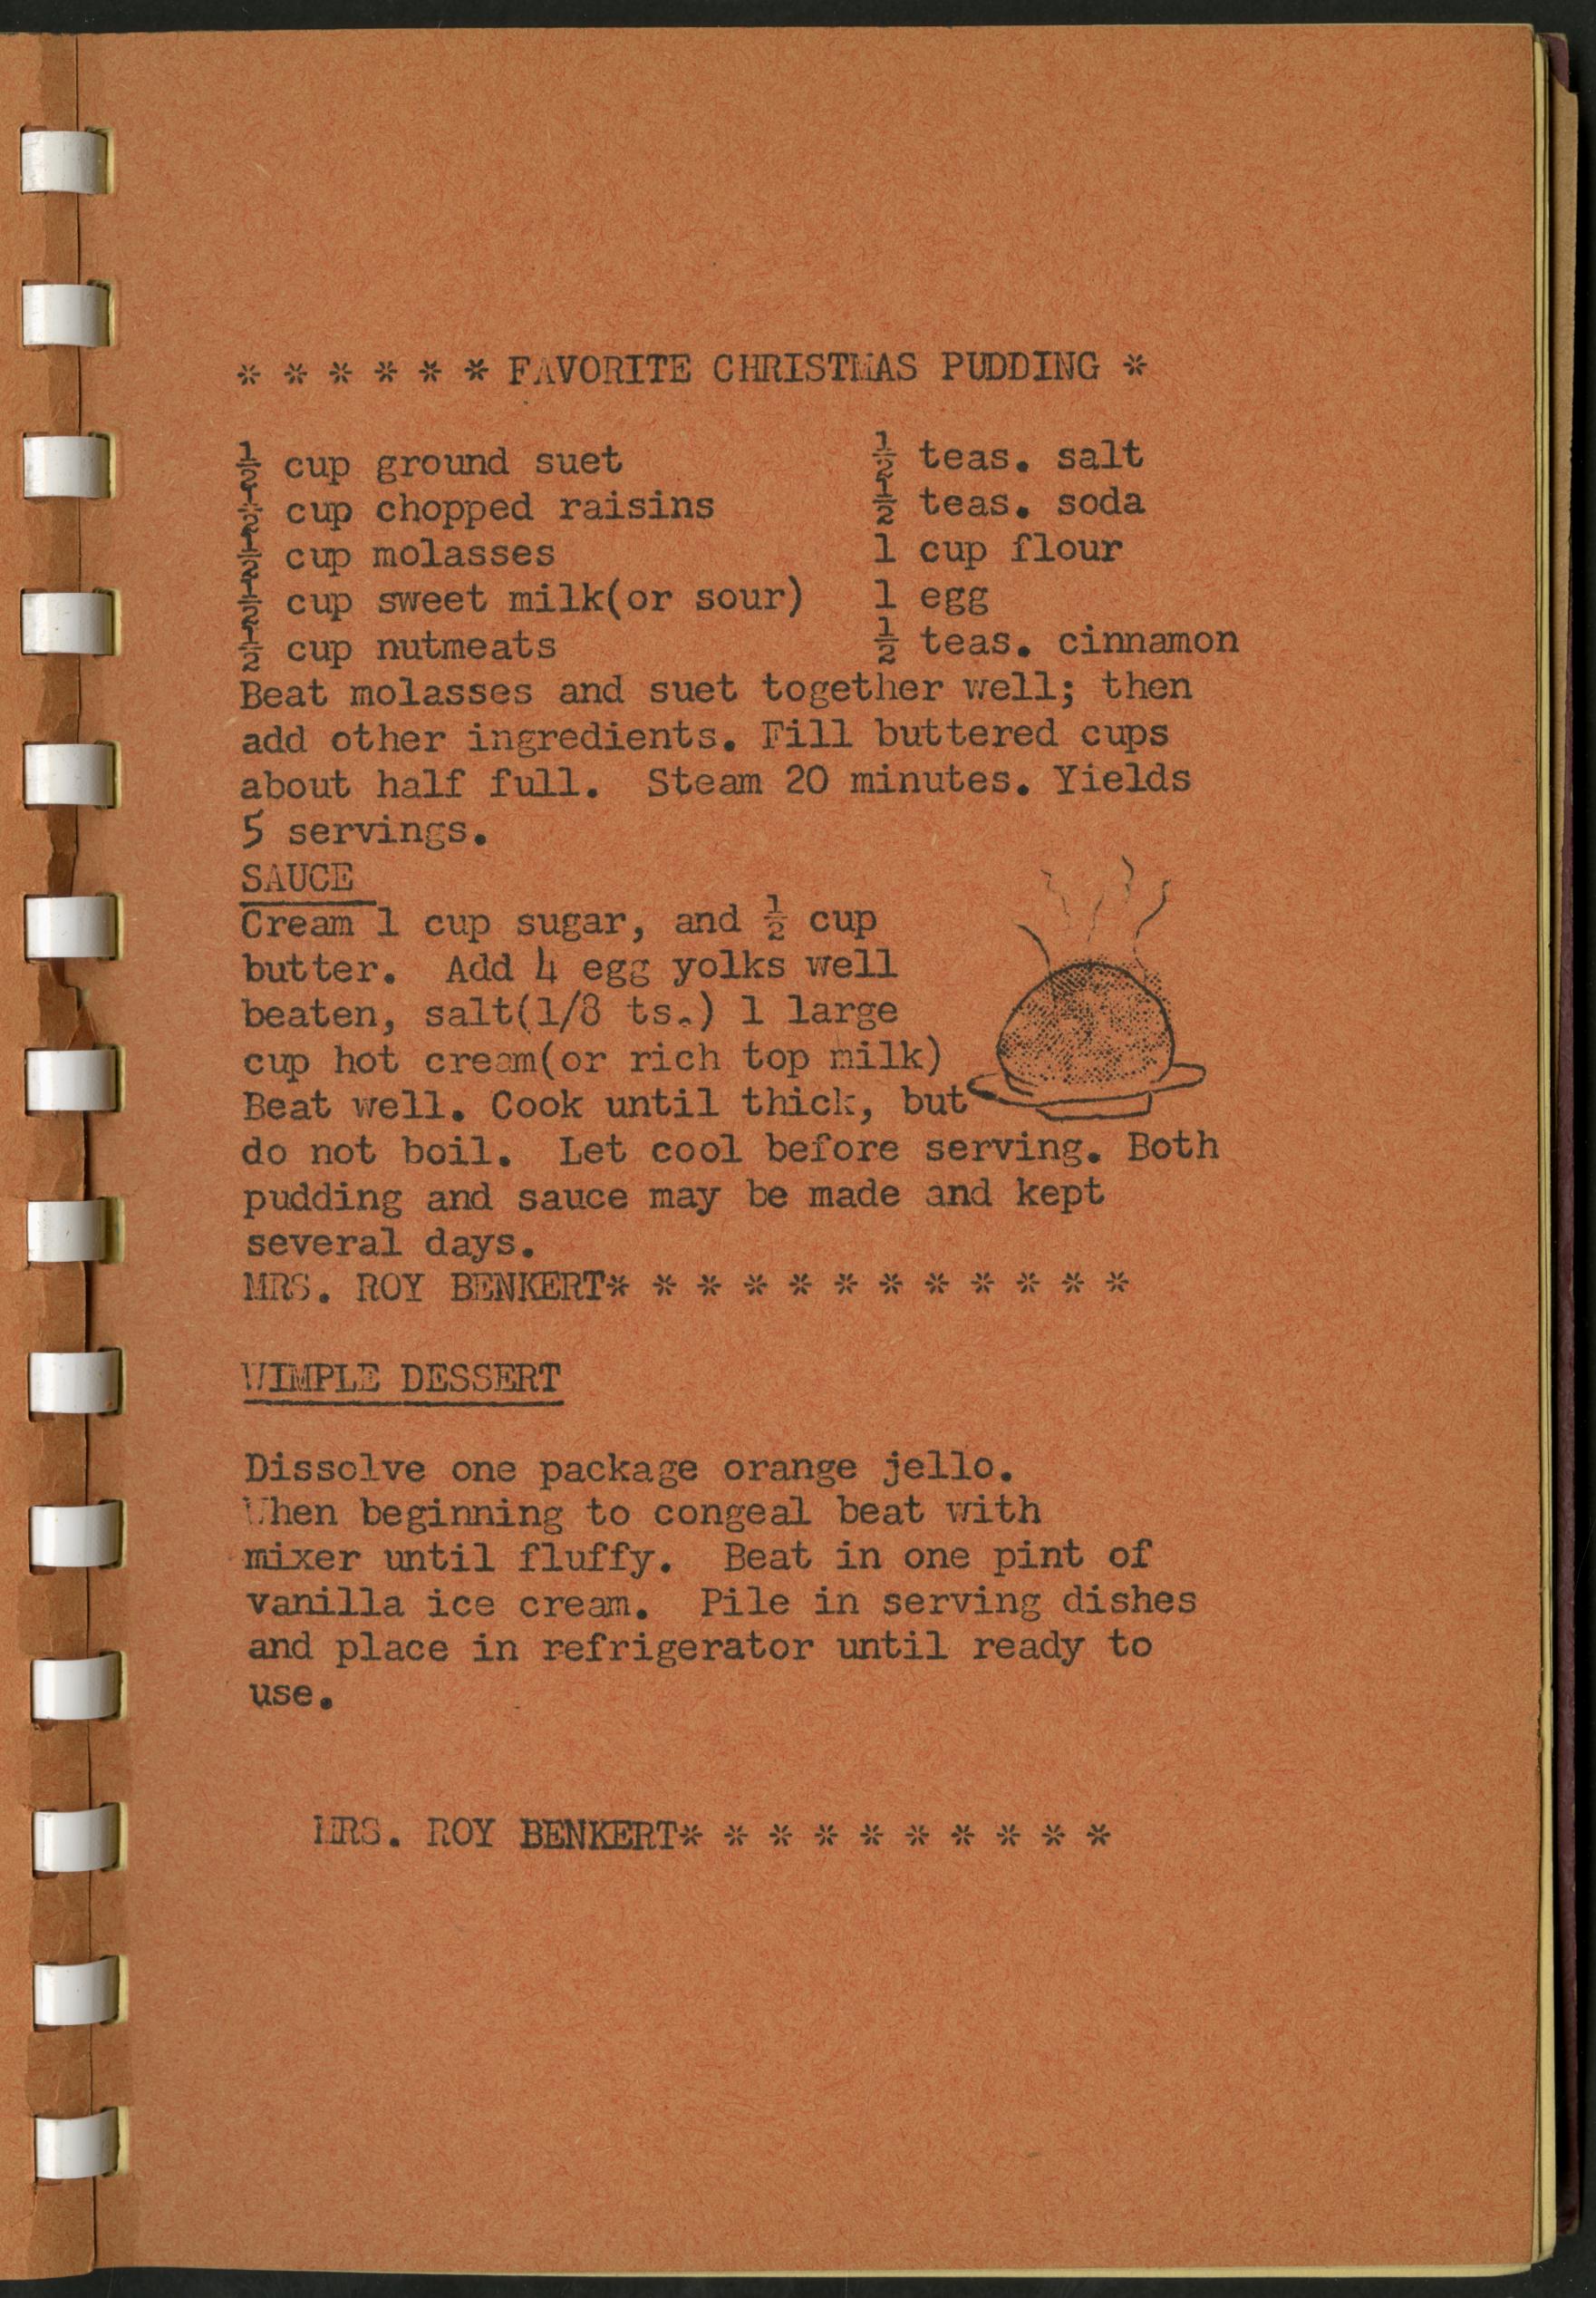 * * * * * * FAVORITE CHRISTMAS PUDDING *
½ cup ground suet ½ teas. salt
½ cup chopped raisins ½ teas. soda
½ cup molasses 1 cup flour
½ cup sweet milk(or sour) 1 egg
½ cup nutmeats ½ teas. cinnamon
Beat molasses and suet together well; then
add other ingredients. Fill buttered cups
about half full. Steam 20 minutes. Yields
5 servings.
SAUCE
Cream 1 cup sugar, and ½ cup
butter. Add 4 egg yolks well
beaten, salt(1/8 ts.) 1 large
cup hot cream(or rich top milk)
Beat well. Cook until thick, but
do not boil. Let cool before serving. Both
pudding and sauce may be made and kept
several days.
MRS. ROY BENKERT* * * * * * * * * * * *
WIMPLE DESSERT
Dissolve one package orange jello.
When beginning to congeal beat with
mixer until fluffy. Beat in one pint of
vanilla ice cream. Pile in serving dishes
and place in refrigerator until ready to
use.
MRS. ROY BENKERT* * * * * * * * * *